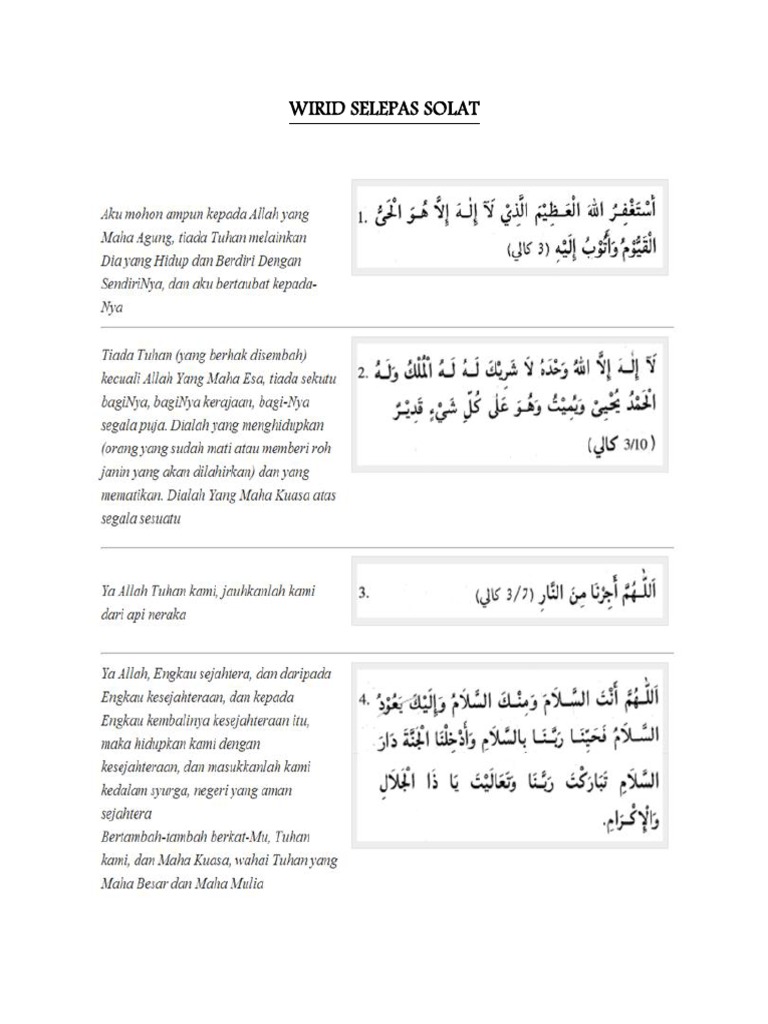 WIRID SELEPAS SOLAT
Aku mohon ampun kepada Allah yang
Maha Agung, tiada Tuhan melainkan
Dia yang Hidup dan Berdiri Dengan
SendiriNya, dan aku bertaubat kepada-
Nya
1. أَسْتَغْفِرُ اللهَ الْعَظِيْمَ الَّذِيْ لَآ إِلٰهَ إِلَّا هُوَ الْحَيُّ
الْقَيُّوْمُ وَأَتُوْبُ إِلَيْهِ (3 كالي)
Tiada Tuhan (yang berhak disembah)
kecuali Allah Yang Maha Esa, tiada sekutu
bagiNya, bagiNya kerajaan, bagi-Nya
segala puja. Dialah yang menghidupkan
(orang yang sudah mati atau memberi roh
janin yang akan dilahirkan) dan yang
mematikan. Dialah Yang Maha Kuasa atas
segala sesuatu
2. لَآ إِلٰهَ إِلَّا اللهُ وَحْدَهُ لَا شَرِيْكَ لَهُ لَهُ الْمُلْكُ وَلَهُ
الْحَمْدُ يُحْيِيْ وَيُمِيْتُ وَهُوَ عَلٰى كُلِّ شَيْءٍ قَدِيْرٌ
(3/10 كالي)
Ya Allah Tuhan kami, jauhkanlah kami
dari api neraka
3. اَللّٰهُمَّ أَجِرْنَا مِنَ النَّارِ (3/7 كالي)
Ya Allah, Engkau sejahtera, dan daripada
Engkau kesejahteraan, dan kepada
Engkau kembalinya kesejahteraan itu,
maka hidupkan kami dengan
kesejahteraan, dan masukkanlah kami
kedalam syurga, negeri yang aman
sejahtera
Bertambah-tambah berkat-Mu, Tuhan
kami, dan Maha Kuasa, wahai Tuhan yang
Maha Besar dan Maha Mulia
4. اَللّٰهُمَّ أَنْتَ السَّلَامُ وَمِنْكَ السَّلَامُ وَإِلَيْكَ يَعُوْدُ
السَّلَامُ فَحَيِّنَا رَبَّنَا بِالسَّلَامِ وَأَدْخِلْنَا الْجَنَّةَ دَارَ
السَّلَامِ تَبَارَكْتَ رَبَّنَا وَتَعَالَيْتَ يَا ذَا الْجَلَالِ
وَالْإِكْرَامِ.